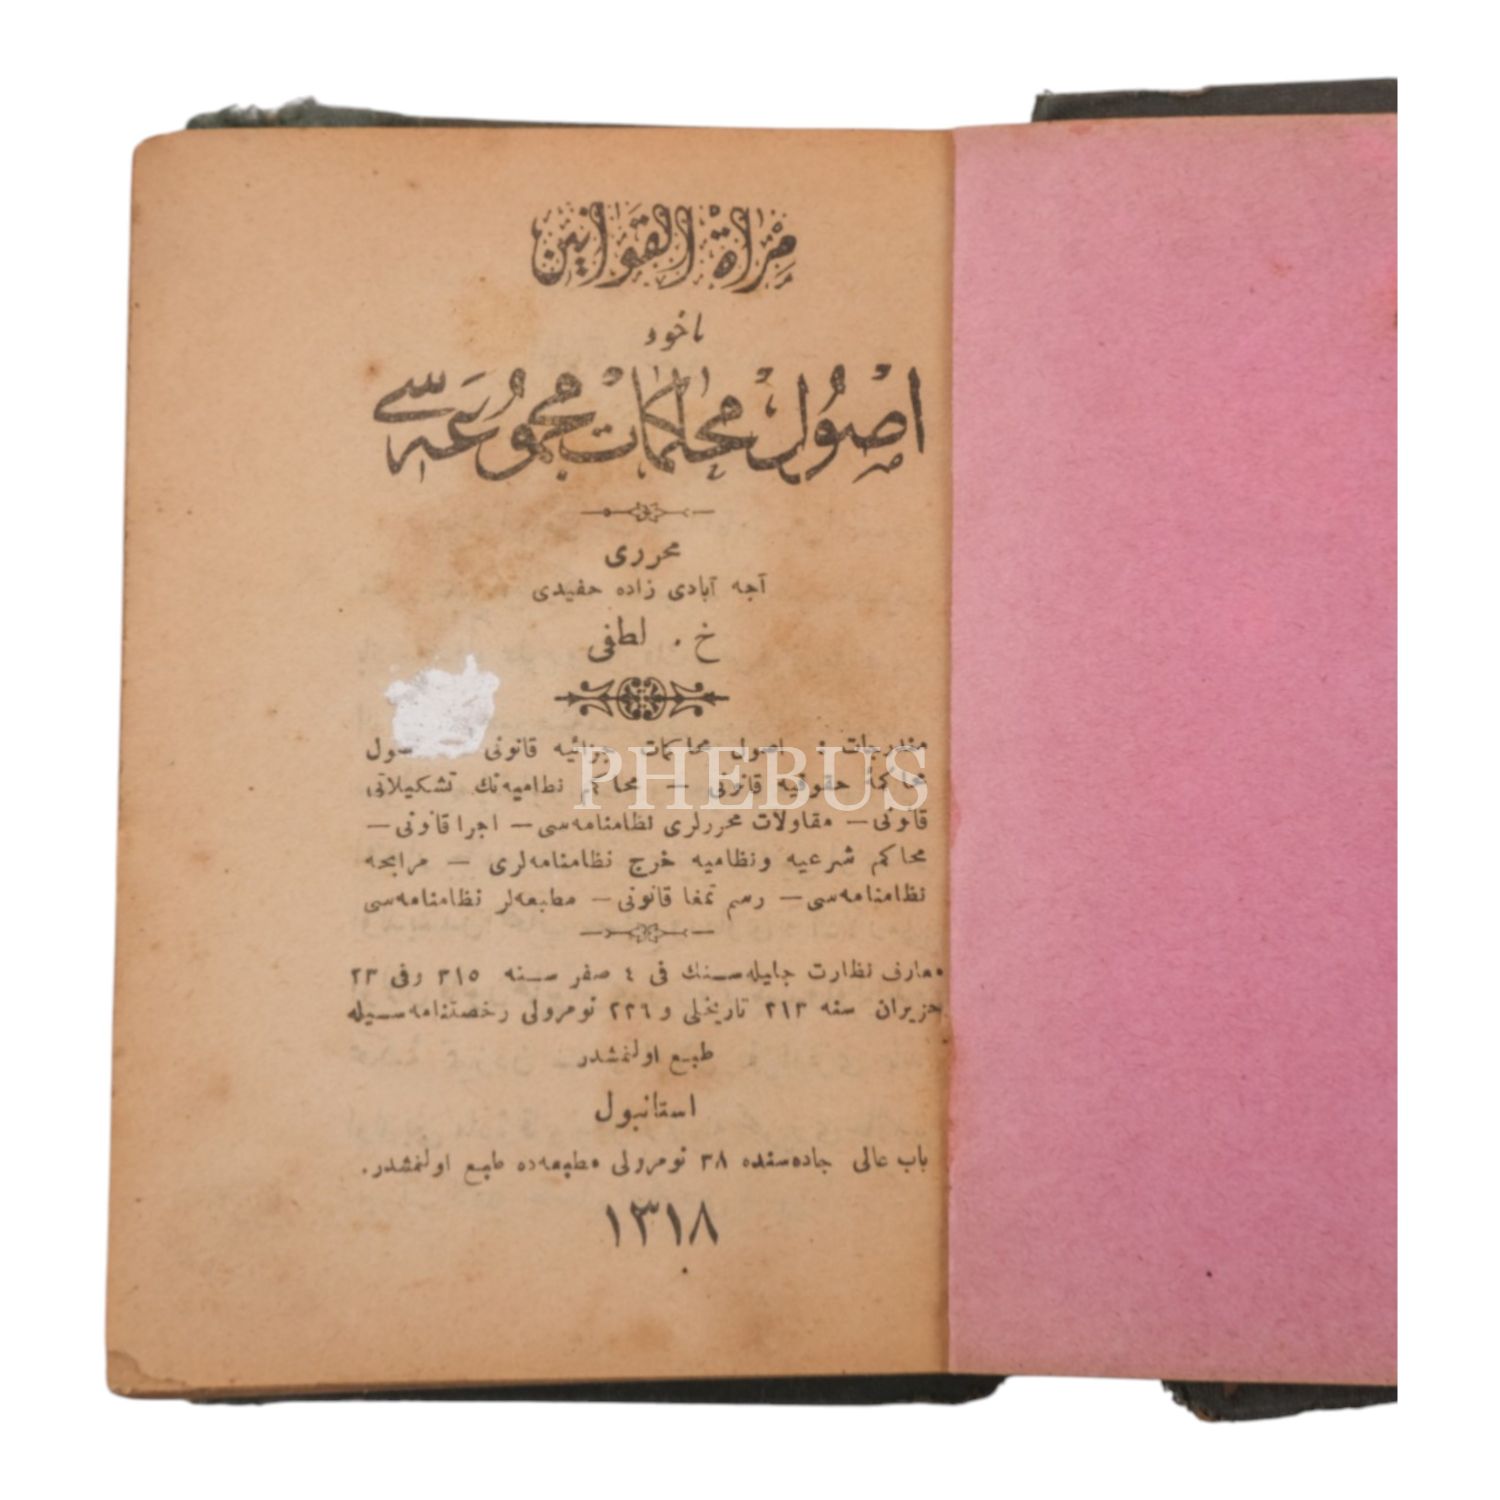 مِرْاٰة القَوَانين
ياخود
اصُول محاكمات مجموُعَه سى
محررى
آجه آبادى زاده حفيدى
خ . لطفى
مندرجات : اصول محاكمات جزائيه قانونى صول
محاكمهٔ حقوقيه قانونى — محاكم نظاميه‌نك تشكيلاتى
قانونى — مقاولات محررلرى نظامنامه‌سى — اجرا قانونى —
محاكم شرعيه ونظاميه خرج نظامنامه‌لرى — مرابحه
نظامنامه‌سى — رسم تمغا قانونى — مطبعه‌لر نظامنامه‌سى
معارف نظارت جليله‌سنك فى ٤ صفر سنه ٣١٥ وفى ٢٣
حزيران سنه ٣١٣ تاريخلى و ٢٢٦ نومرولى رخصتنامه‌سيله
طبع اولنمشدر
استانبول
باب عالى جاده‌سنده ٣٨ نومرولى مطبعه‌ده طبع اولنمشدر.
١٣١٨
PHEBUS